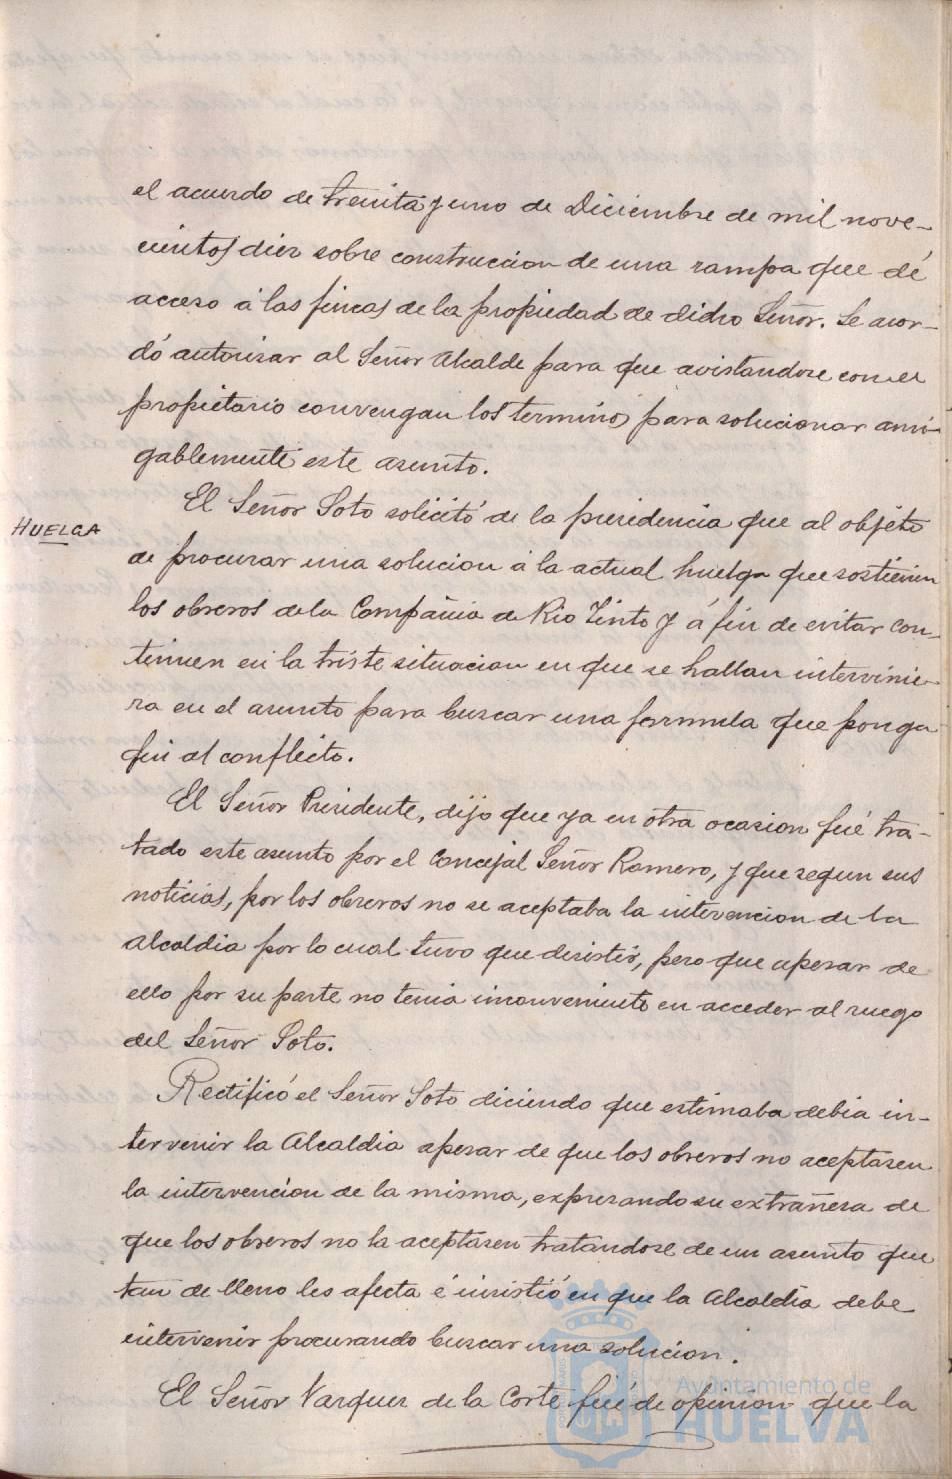 el acuerdo de treinta y uno de Diciembre de mil nove-
cientos diez sobre construccion de una rampa que dé
acceso á las fincas de la propiedad de dicho Señor. Se acor-
dó autorizar al Señor Alcalde para que avistandose con el
propietario convengan los terminos para solucionar ami-
gablemente este asunto.
El Señor Soto solicitó de la presidencia que al objeto
HUELGA
de procurar una solucion á la actual huelga que sostienen
los obreros de la Compañia de Rio Tinto y á fin de evitar con-
tinuen en la triste situacion en que se hallan intervinie-
ra en el asunto para buscar una formula que ponga
fin al conflicto.
El Señor Presidente, dijo que ya en otra ocasion fué tra-
tado este asunto por el Concejal Señor Romero, y que segun sus
noticias, por los obreros no se aceptaba la intervencion de la
Alcaldia por lo cual tuvo que desistir, pero que apesar de
ello por su parte no tenia inconveniente en acceder al ruego
del Señor Soto.
Rectificó el Señor Soto diciendo que estimaba debia in-
tervenir la Alcaldia apesar de que los obreros no aceptasen
la intervencion de la misma, expresando su extrañesa de
que los obreros no la aceptasen tratandose de un asunto que
tan de lleno les afecta é insistió en que la Alcaldia debe
intervenir procurando buscar una solucion.
El Señor Vazquez de la Corte fué de opinion que la
Ayuntamiento de
HUELVA